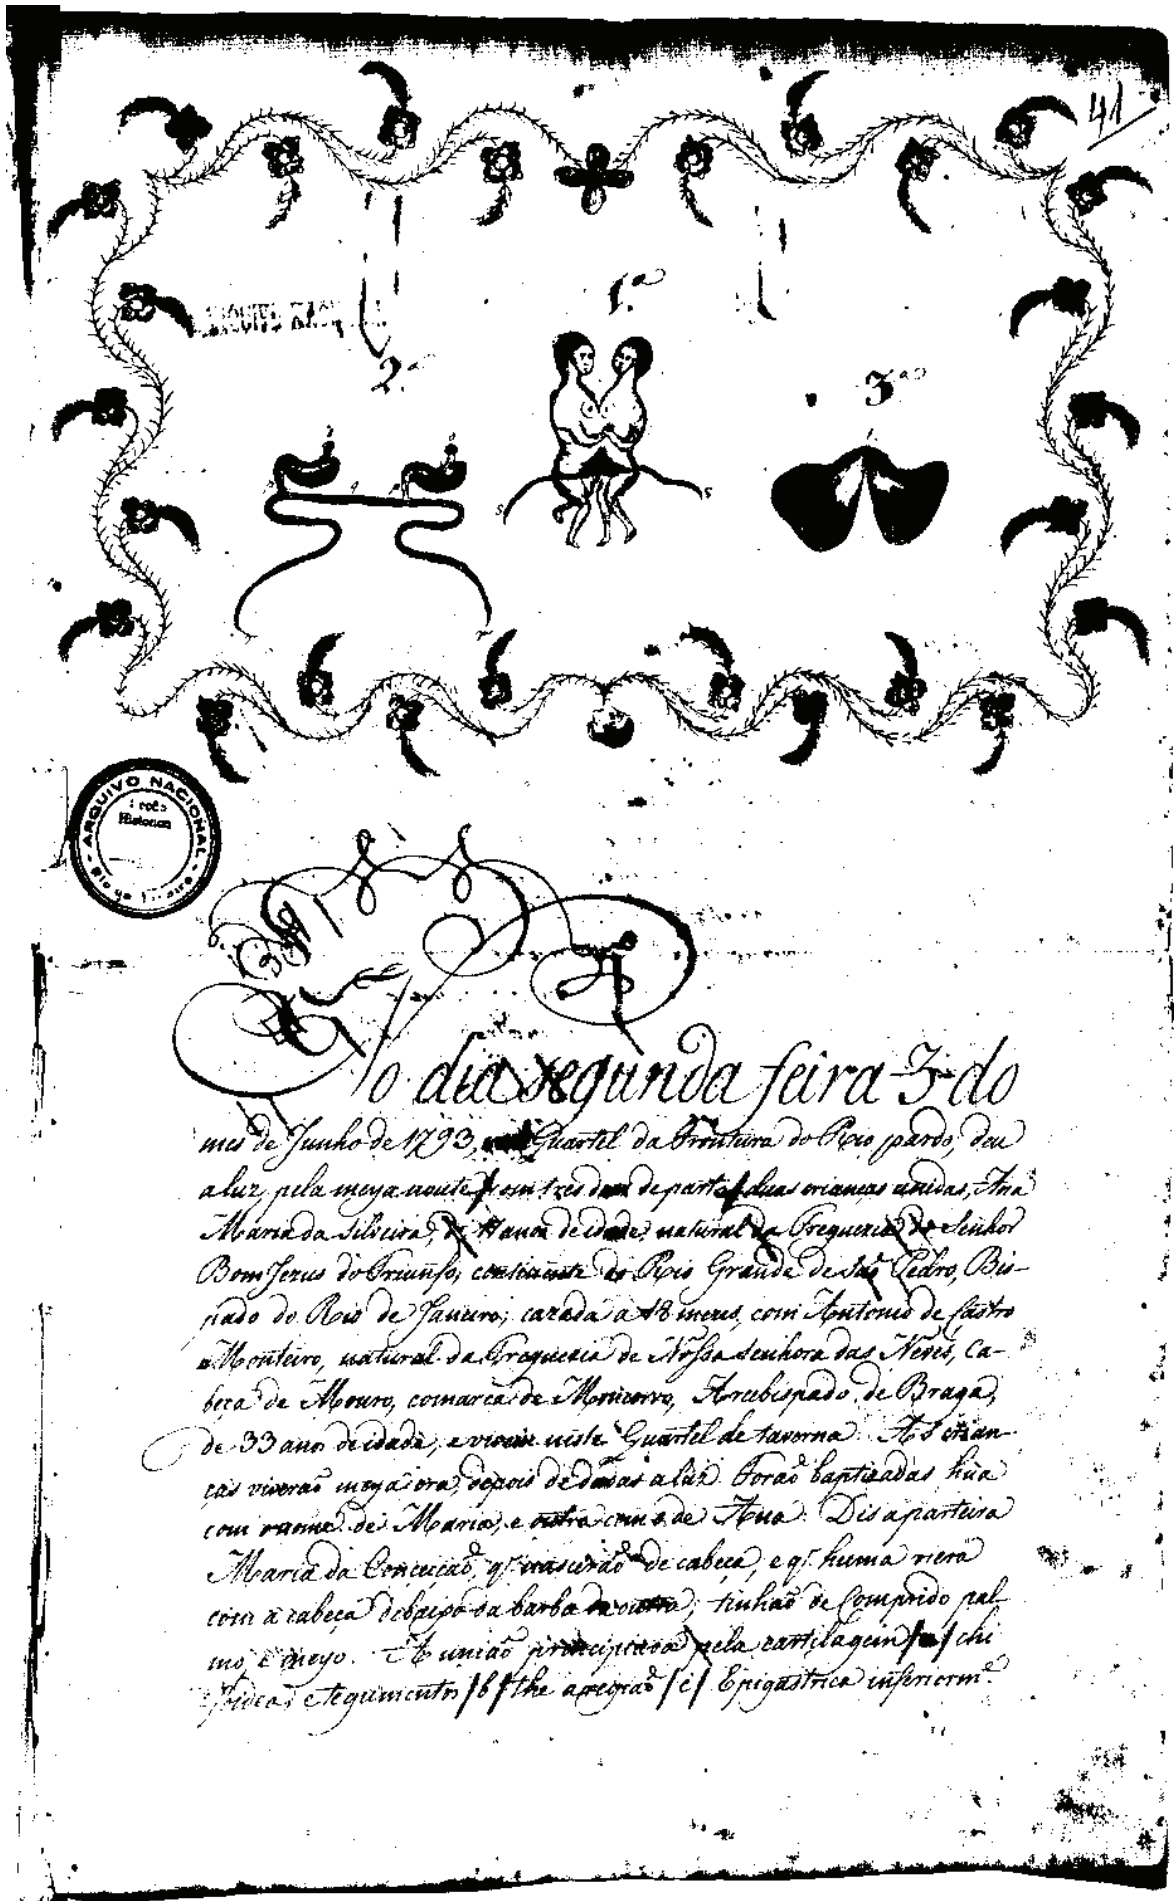 41
1.ª
2.ª
3.ª
ARQUIVO NACIONAL
No dia segunda feira 3 do
mes de Junho de 1793, Quartel da Fronteira do Rio pardo, deu
a luz, pela meya noute / com tres de parto / duas crianças unidas, Ana
Maria da Silveira, de anos de idade, natural da Freguezia do Senhor
Bom Jezus do Triunfo, continente do Rio Grande de São Pedro, Bis-
pado do Rio de Janeiro; cazada a 18 mezes, com Antonio de Castro
Monteiro, natural da Freguezia de Nossa Senhora das Neves, Ca-
beça de Mouro, comarca de Moncorvo, Arcebispado de Braga,
de 33 anos de idade, e neste Quartel de taverna. As crian-
ças viveraõ meya ora, depois de dadas a luz. Foraõ baptizadas hũa
com o nome de Maria, e outra com o de Ana. Dis a parteira
Maria da Conceiçaõ, q. nasceraõ de cabeça, e q. huma viera
com a cabeça debaixo da barba da outra; tinhaõ de Comprido pal-
mo, e meyo. A uniaõ principiava pela cartilagem /a/ chi
foidea, e tegumentos /b/ the a regiaõ /c/ Epigastrica inferiorm.e